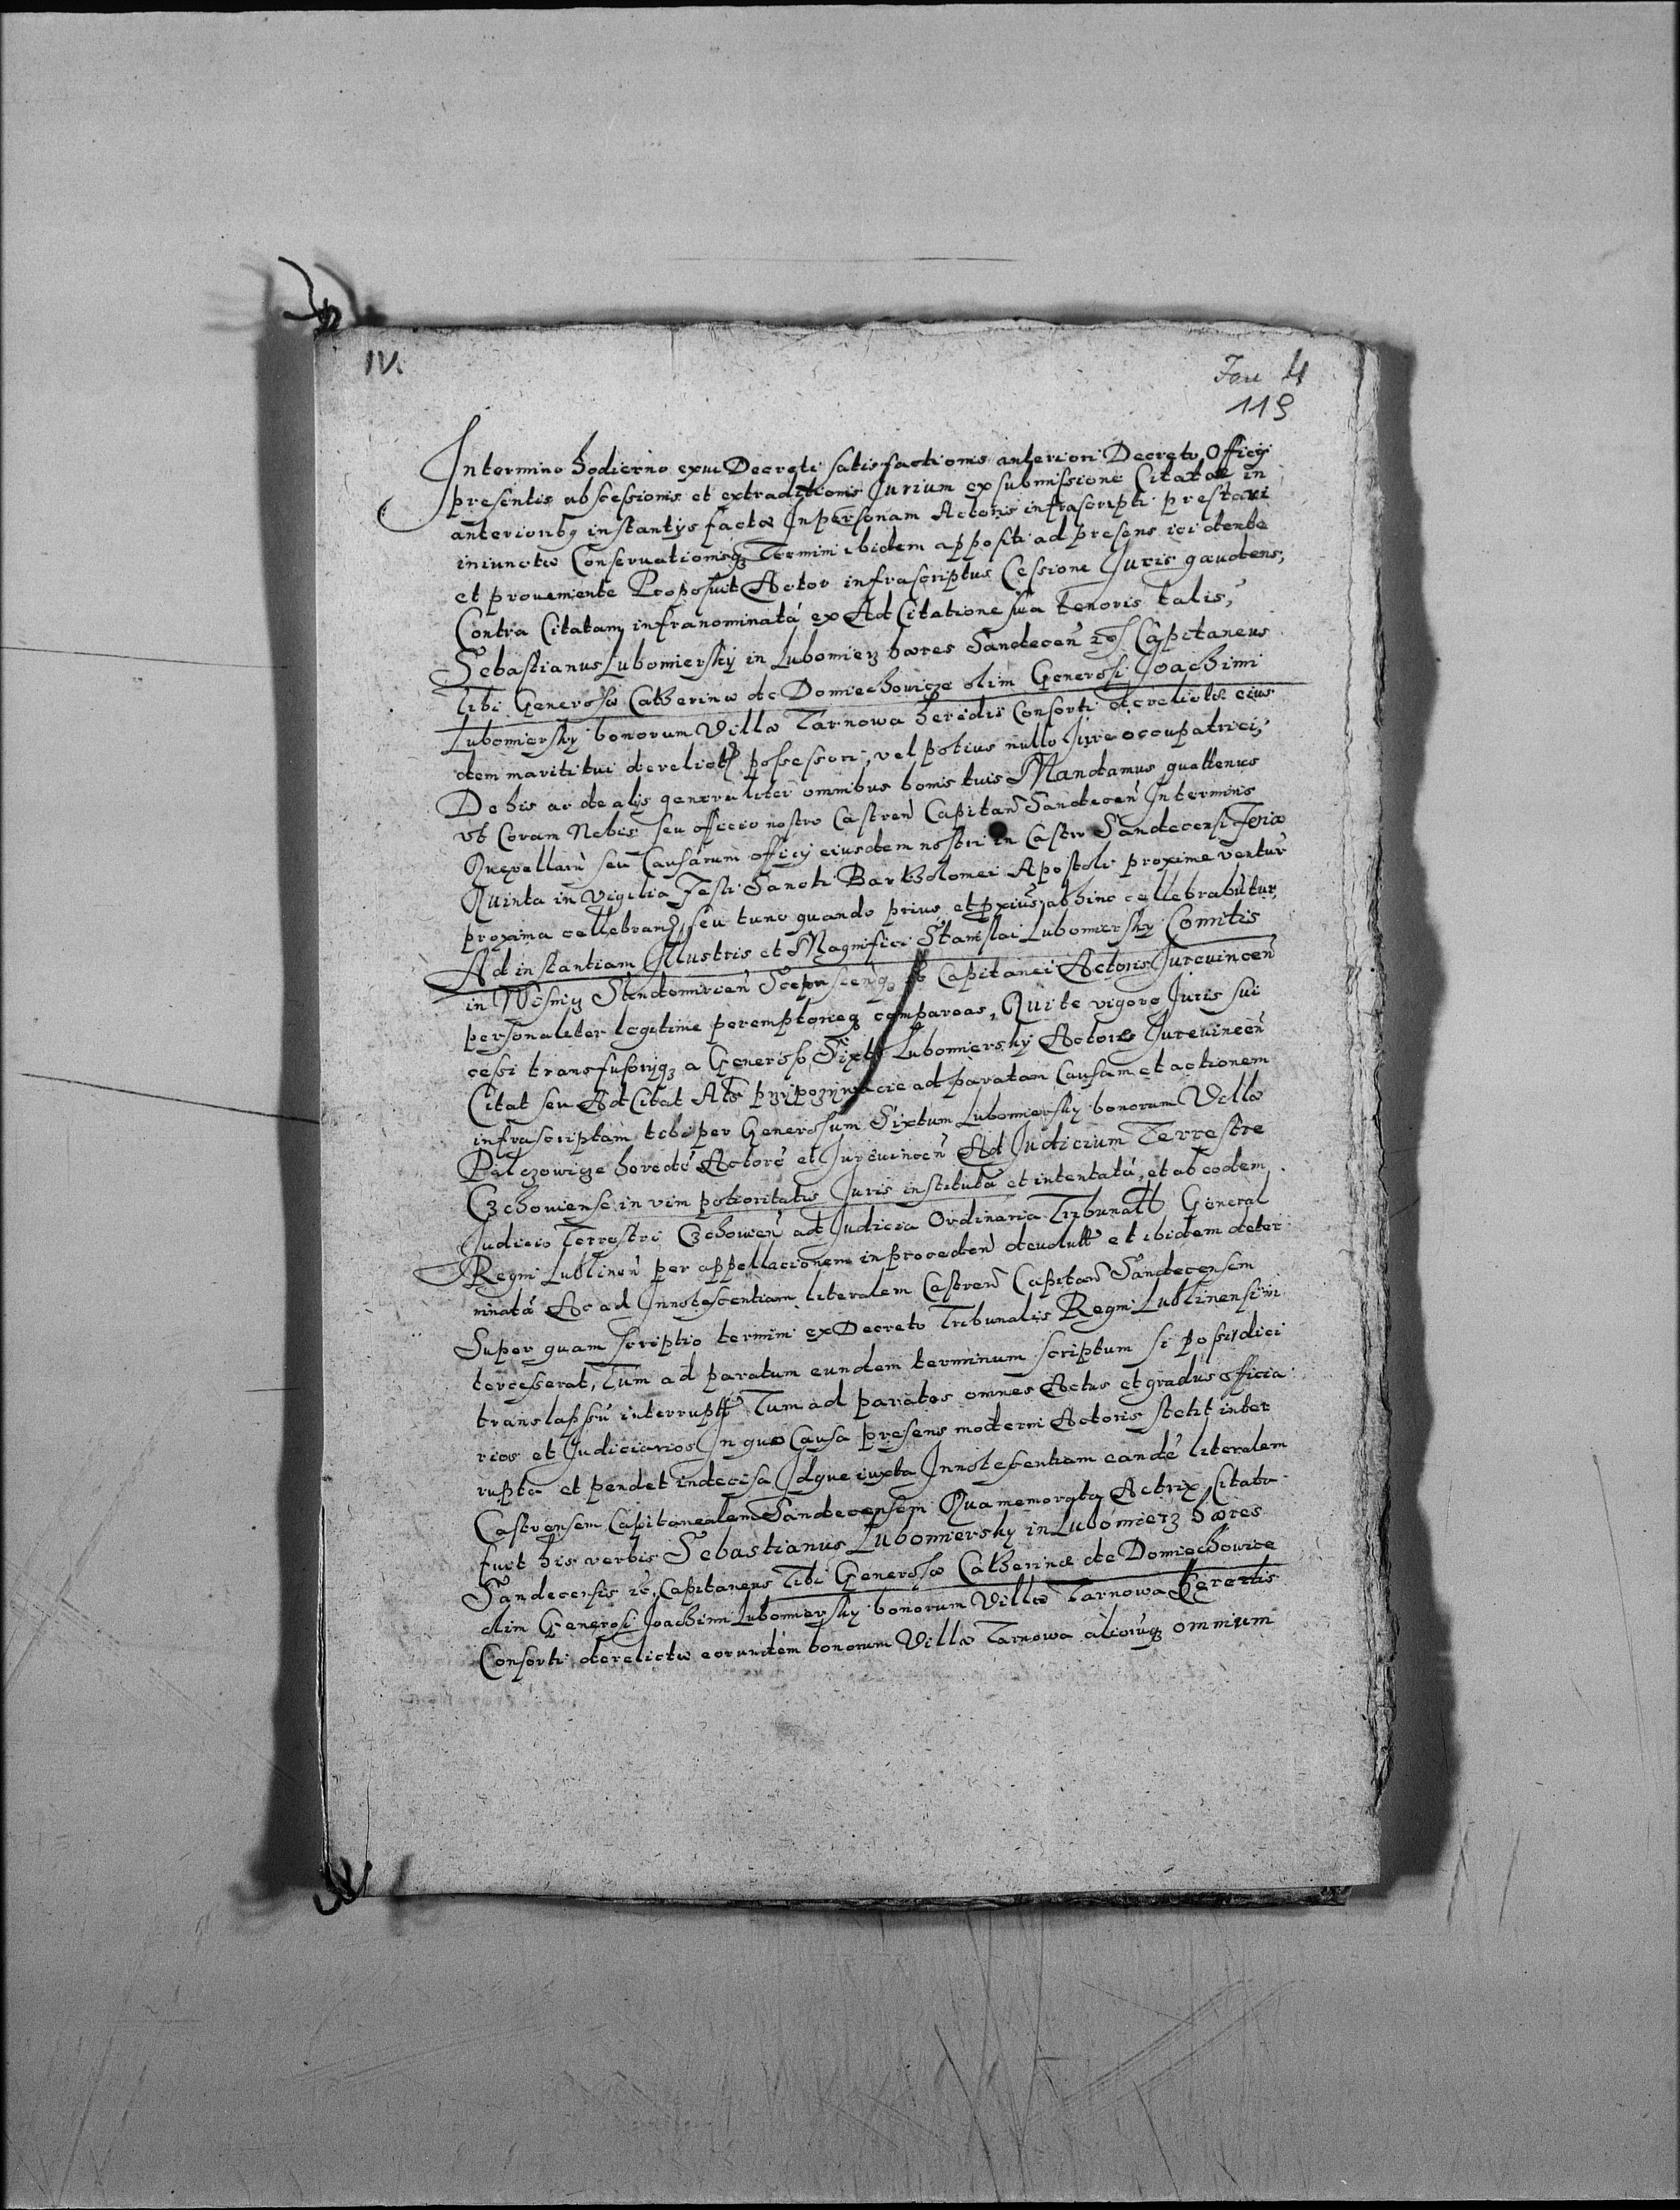 IV.
119
Intermino hodierno exvi Decreti satisfactionis anteriori Decreto Officij
presentis abscessionis et extraditionis Jurium ex submissione Citatæ in
anteriorib9 instantijs factæ Inpersonam Actoris infrascripti prestari
iniunctæ Conseruationisq3 Termini ibidem appositi ad presens icidente
et proueniente Proposuit Actor infrascriptus Cessione Juris gaudens,
Contra Citatam infranominatá ex Ad Citatione sua tenoris talis,
Sebastianus Lubomierskÿ in Lubomierz hæres Sandecen̄ Capitaneus
Tibi Generosæ Catherinæ de Domiechowicze olim Generosi Joachimi
Lubomiersky bonorum Villæ Tarnowa heredis Consorti derelictæ eius
dem mariti tui derelict possessori, vel potius nullo Jure occupatrici,
De his ac de alijs generaliter omnibus bonis tuis Mandamus quattenus
vt Coram Nobis seu officio nostro Castren̄ Capitan̄ Sandecen̄ Interminis
Querellarū seu Causarum officij eiusdem nostri in Castro Sandecensi Feria
Quinta in vigilia Festi Sancti Bartholomei Apostoli proxime ventur
proxima cellebran, seu tunc quando prius et pxius abhinc cellebrabūtur,
Ad instantiam Illustris et Magnifici Stanislai Lubomiersky Comitis
in Wisnicz Sendomirien̄ Scepusienq3 Capitanei Actoris Jureuincen̄
personaliter legitime peremptorieq3 compareas, Qui te vigore Juris sui
cessi transfusorijq3 a Generoso Sixto Lubomierskÿ Actore Jureuincen̄
Citat seu Ad Citat Als przÿpozÿwacie ad paratam Causam et actionem
infrascriptam tibi per Generosum Sixtum Lubomiersky bonorum Villæ
Palczowicze heredé Actoré et Jureuincen̄ Ad Judicium Terrestre
Czchouiense in vim potioritatis Juris institutá et intentatá, et ab eodem
Judicio Terrestri Czchouien̄ ad Judicia Ordinaria Tribunall General
Regni Lublinen̄ per appellacionem inproceden̄ deuolutt et ibidem deter
minatá Ac ad Innotescentiam literalem Castren̄ Capitan̄ Sandecensem
Super quam scriptio termini ex Decreto Tribunalis Regni Lublinensi in
tercesserat, Tum ad paratum eundem terminum scriptum si possit dici
translapsū interrupt Tum ad paratos omnes Actus et gradus officia
rios et Judiciarios In quo Causa presens moderni Actoris stetit inter
rupta et pendet indecisa Idque iuxta Innotescentiam eandé literalem
Castrensem Capitanealem Sandecensem Qua memorata Actrix Citata
fuit his verbis Sebastianus Lubomiersky in Lubomierz hæres
Sandecensis Capitaneus Tibi Generosæ Catherinæ de Domiechowice
olim Generosi Joachimi Lubomiersky bonorum Villæ Tarnowa Heredis
Consorti derelictæ eorundem bonorum Villæ Tarnowa aliorūq3 omnium